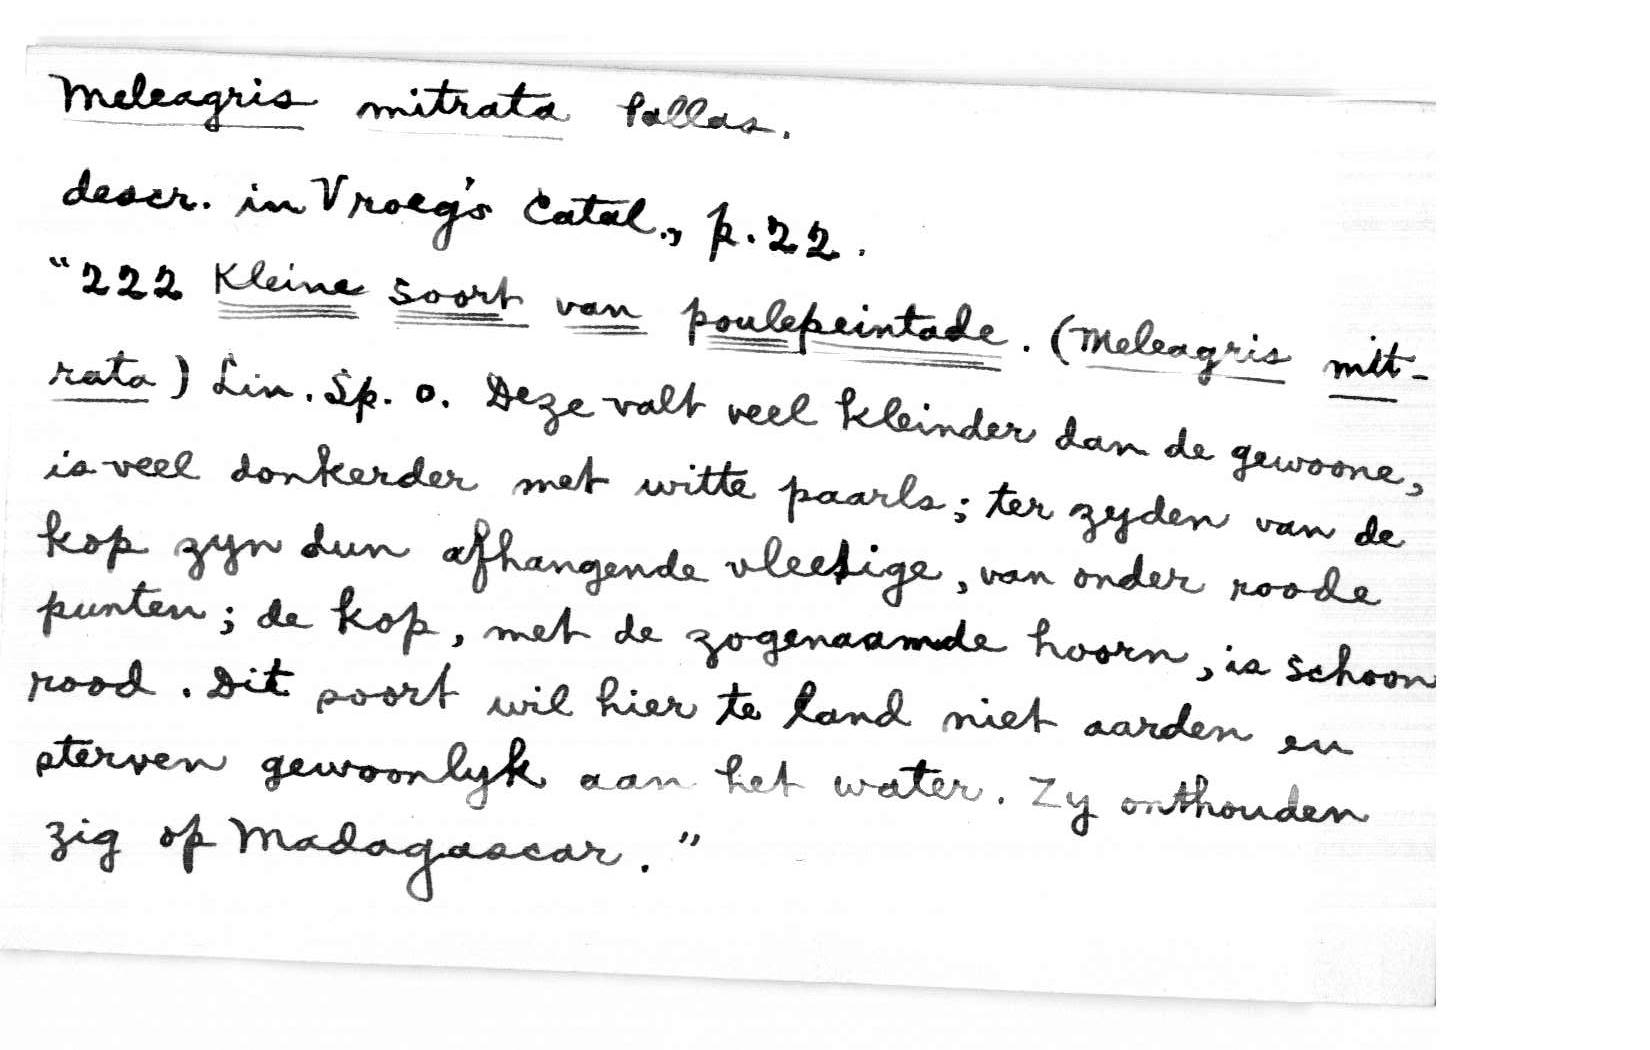 Meleagris mitrata Pallas.
descr. in Vroeg's Catal., p. 22.
"222 Kleine soort van poulepeintade. (Meleagris mit-
rata) Lin. Sp. o. Deze valt veel kleinder dan de gewoone,
is veel donkerder met witte paarls; ter zyden van de
kop zyn dun afhangende vleesige, van onder roode
punten; de kop, met de zogenaamde hoorn, is schoon
rood. Dit soort wil hier te land niet aarden en
sterven gewoonlyk aan het water. Zy onthouden
zig op Madagascar."